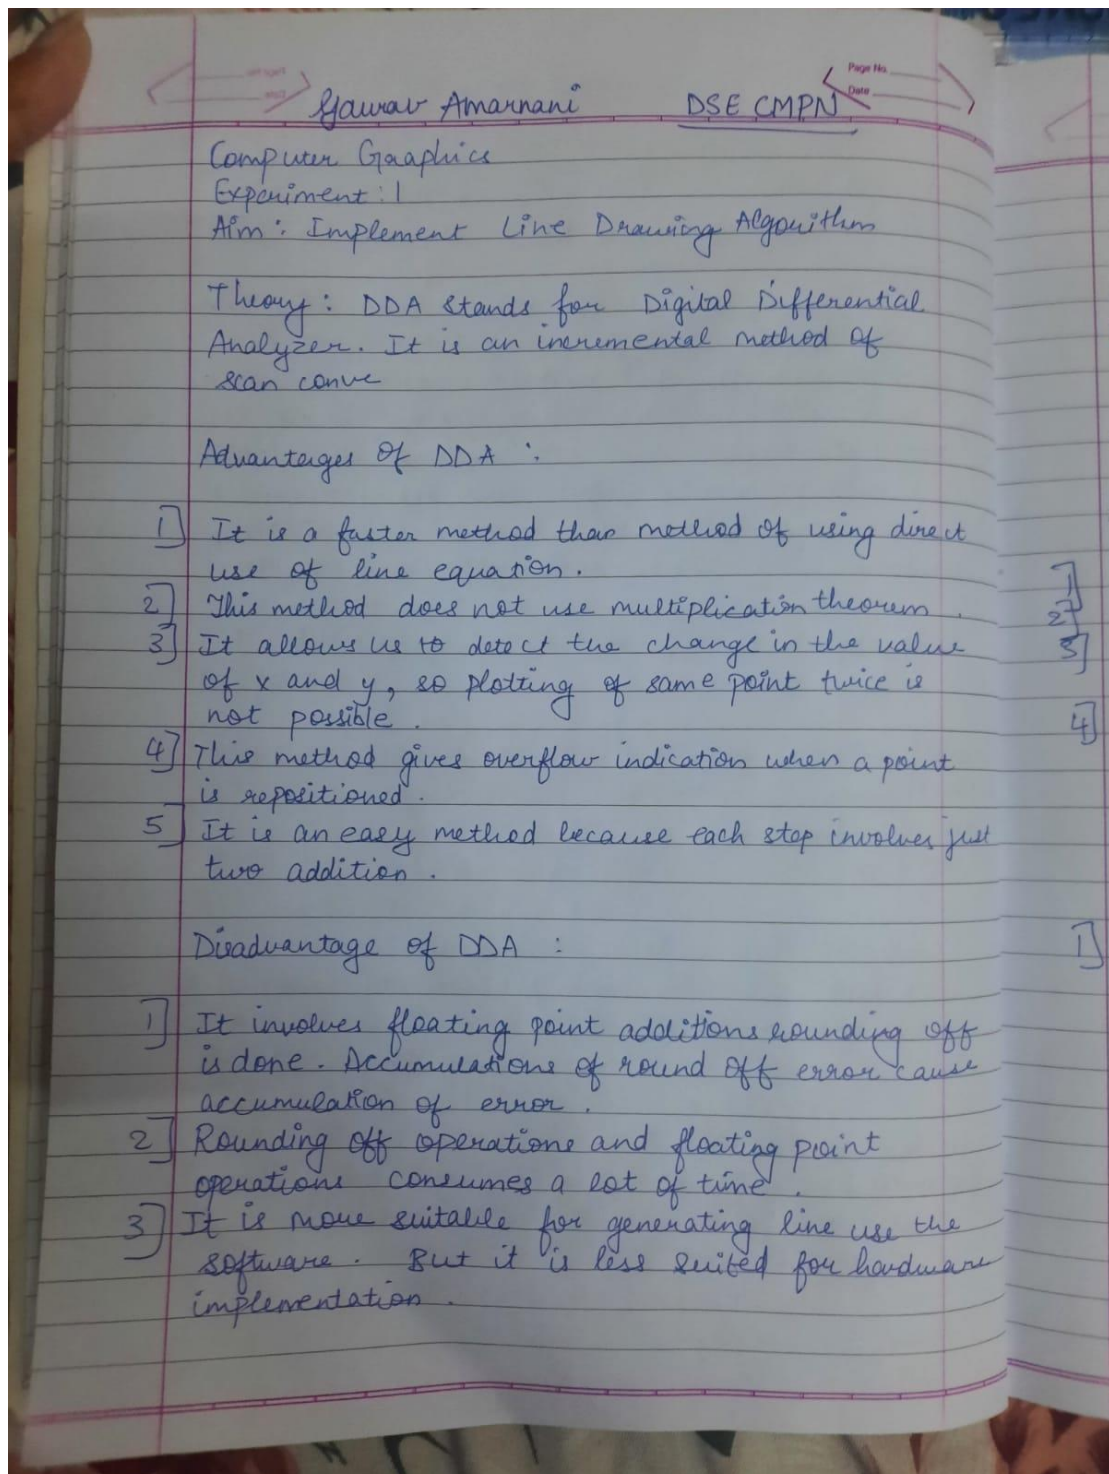 Page No.
Date
Gaurav Amarnani DSE CMPN
Computer Graaphics
Experiment : 1
Aim : Implement Line Drawing Algorithm
Theory : DDA stands for Digital Differential
Analyzer. It is an incremental method of
scan conve
Advantages of DDA :
1] It is a faster method than method of using direct
use of line equation.
2] This method does not use multiplication theorem.
3] It allows us to detect the change in the value
of x and y, so plotting of same point twice is
not possible.
4] This method gives overflow indication when a point
is repositioned.
5] It is an easy method because each step involves just
two addition.
Disadvantage of DDA :
1] It involves floating point additions rounding off
is done. Accumulations of round off error cause
accumulation of error.
2] Rounding off operations and floating point
operations consumes a lot of time.
3] It is more suitable for generating line use the
software. But it is less suited for hardware
implementation.
1]
2]
3]
4]
1]